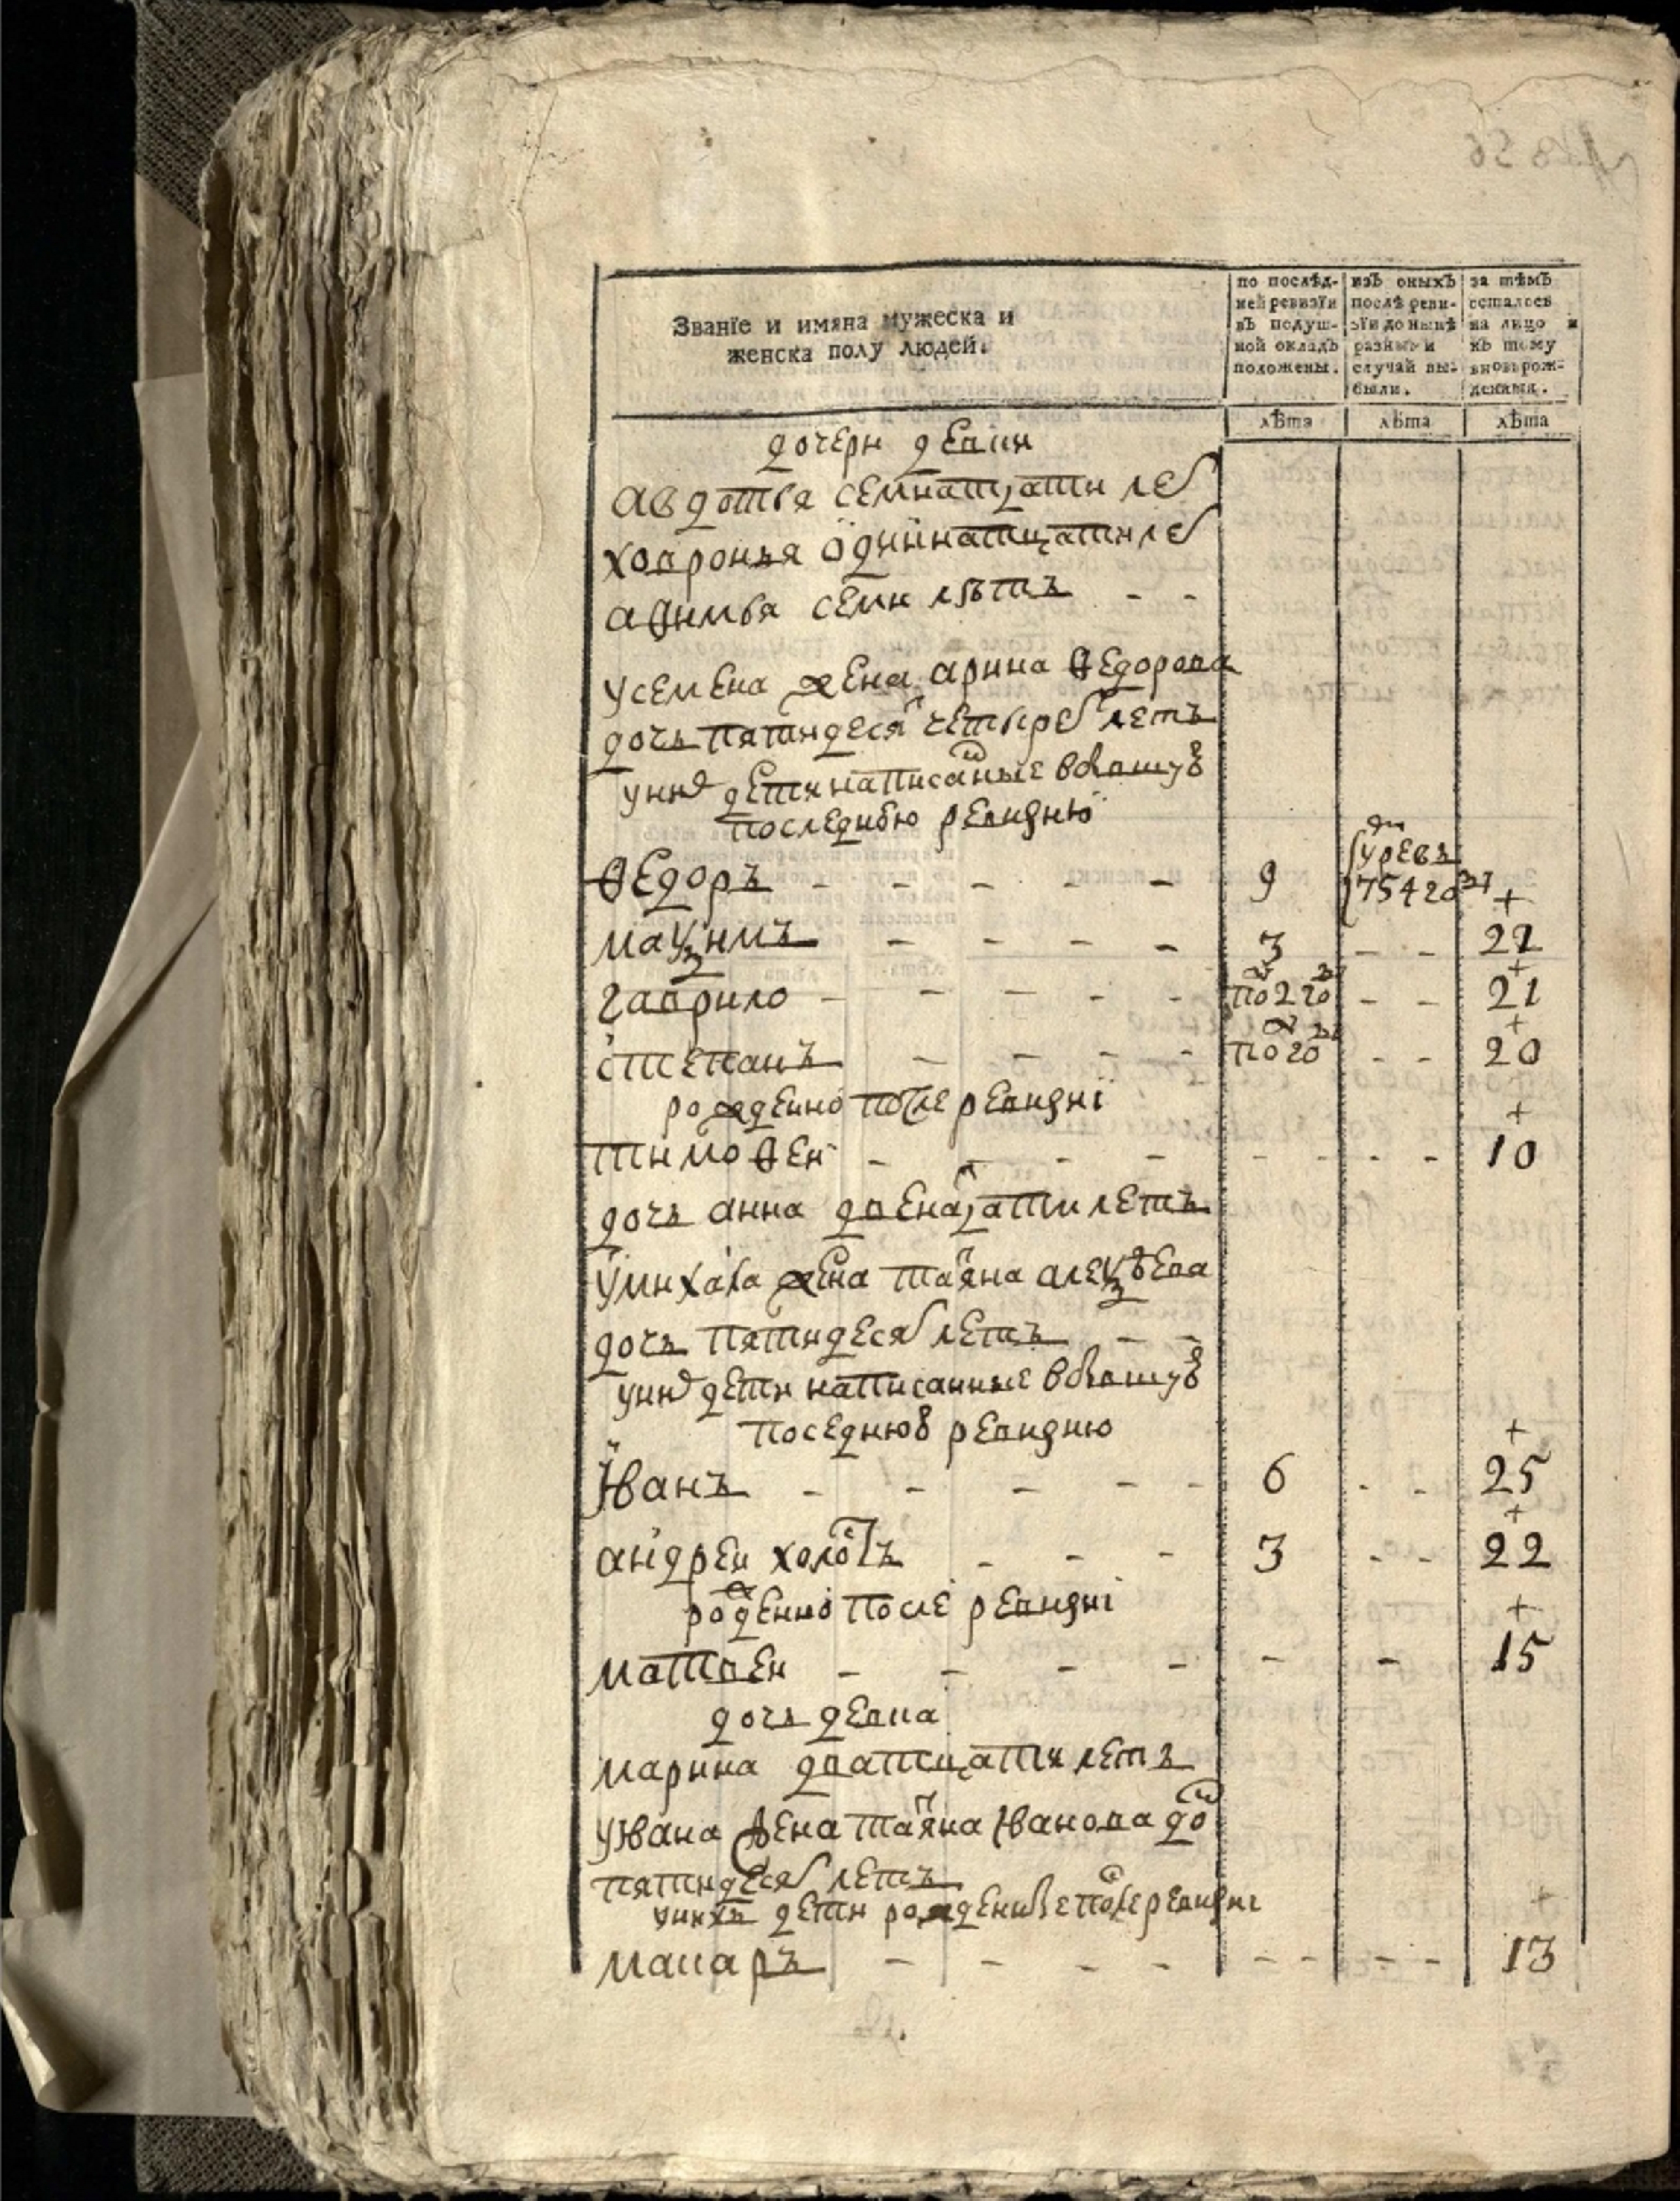 Званїе и имяна мужеска и
женска полу людей.
по послѣд-
ней ревизїи
въ подуш-
ной окладъ
положены.
изъ оныхъ
послѣ реви-
зїи до нынѣ
разными
случай вы-
были.
за тѣмъ
осталось
на лицо и
къ тому
вновьрож-
денныя.
лѣта
лѣта
лѣта
дочери девки
авдотья семнатцати ле
ховронья одиннатцати ле
афимья семи лѣтъ - -
у семена жена арина ѳедорова
дочь пятидеся четырех летъ
у них дети написаные в бывшую
последнюю ревизию
ѳедоръ - - - - - 9 умре въ 754 го
маѯимъ - - - - 3 - - 22
гаврило - - - - - по 2 го - - 21
степанъ - - - - по го - - 20
рожденно после ревизиї
тимоѳеи - - - - - - - - 10
дочь анна двенацати летъ
у михаила жена таяна алеѯѣева
дочь пятидеся летъ - -
у них дети написанные в бывшую
поседнюю ревизию
иванъ - - - - - 6 - - 25
андреи холостъ - - - 3 - - 22
рожденно после ревизиї
матвеи - - - - - - 15
дочь девка
марина дватцати летъ
у ивана жена таяна иванова до
пятидеся летъ
у нихъ дети рожденые после ревизиї
макаръ - - - - - - - - 13